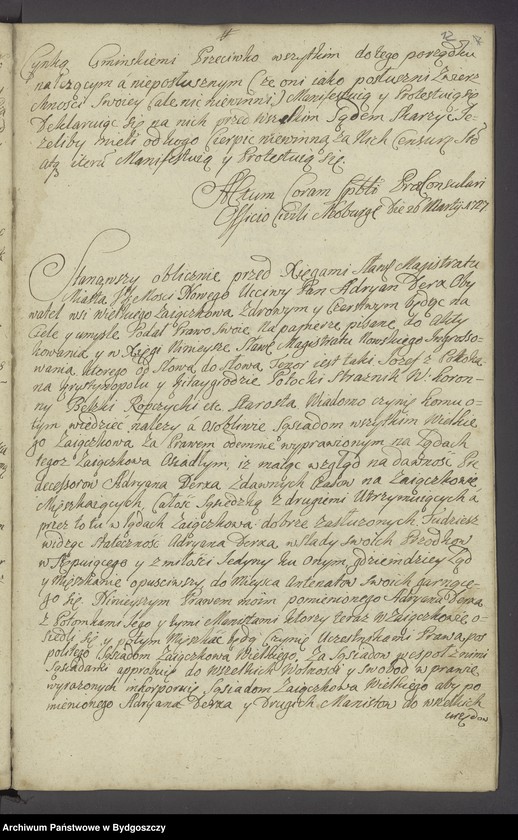 12
Cynką Gminskiemi Przeciwko wszytkim do tego porządku
należącym á nieposłusznym (że oni iako posłuszni Zwierz
chności Swoiey (ale nic niewinni) Manifestuią y Protestuią się
Deklaruiąc się na nich przed wszelkim Sądem Skarżyć Je-
żeliby mieli od kogo Cierpieć niewinną za Nich Censurę
iteru Manifestuią y Protestuią się.
Actum Coram Proconsulari
Officio Civili Die 26 Martij 1727
Stanąwszy oblicznie przed Xięgami Sław: Magistratu
Miasta Nowego Ucciwy Pan Adryan Derx Oby
watel wsi wielkiego Zaiączkowa Zdrowym y Czerstwym będąc na
Ciele y umyśle Podał Prawo Swoie na papierze pisane do Akty
kowania y w Xięgi Ninieysze Sław: Magistratu Nowskiego Ingrosso-
wania ktorego od Słowa do słowa Tenor iest taki Jozef z Potoka
na grystynopolu y Potocki Straznik W: Koron-
ny Bełzki Ropczycki etc. Starosta. Wiadomo czynię komu o
tym wiedziec należy á osobliwie Sąsiadom wszytkim Wielkie
go Zaiączkowa za Prawem odemnie wyprawionym na Lądach
tegoż Zaiączkowa Osadłym, iż maiąc wzgląd na dawność Prę
decessorow Adryana Derxa zdawnych Czasow na Zaiączkowie
Mięszkaiących, Całość Sąsiedzką z drugiemi Utrzymuiących á
przez to tu w Lądach Zaiączkowa dobrze zasłużonych. Tudziesz
widząc Stateczność Adryana Derxa w slady Swoich Przodkow
w Stępuiącego y z miłości Jedyny ku onym, gdzieindziey Ląd
y Mięszkanie opusciwszy do Mieysca Antenatow Swoich garnące-
go się Ninieyszym Prawem moim pomienionego Adryana Derxa
z Potomkami Jego y temi Manistami ktorzy teraz w Zaiączkowie o-
siedli się y potym Mięszkać będą Czynię Uczestnikami Prawa pos
politego Sąsiadom Zaiączkowa Wielkiego. Za Sąsiadow wespoł z nimi
Sąsiadami approbuię do wszelkich Wolności y Swobod w prawie
wyrażonych inkorporuię Sąsiadom Zaiączkowa Wielkiego aby po
mienionego Adryana Derxa y Drugich Manistow do wszelkich
urzędow
Archiwum Państwowe w Bydgoszczy